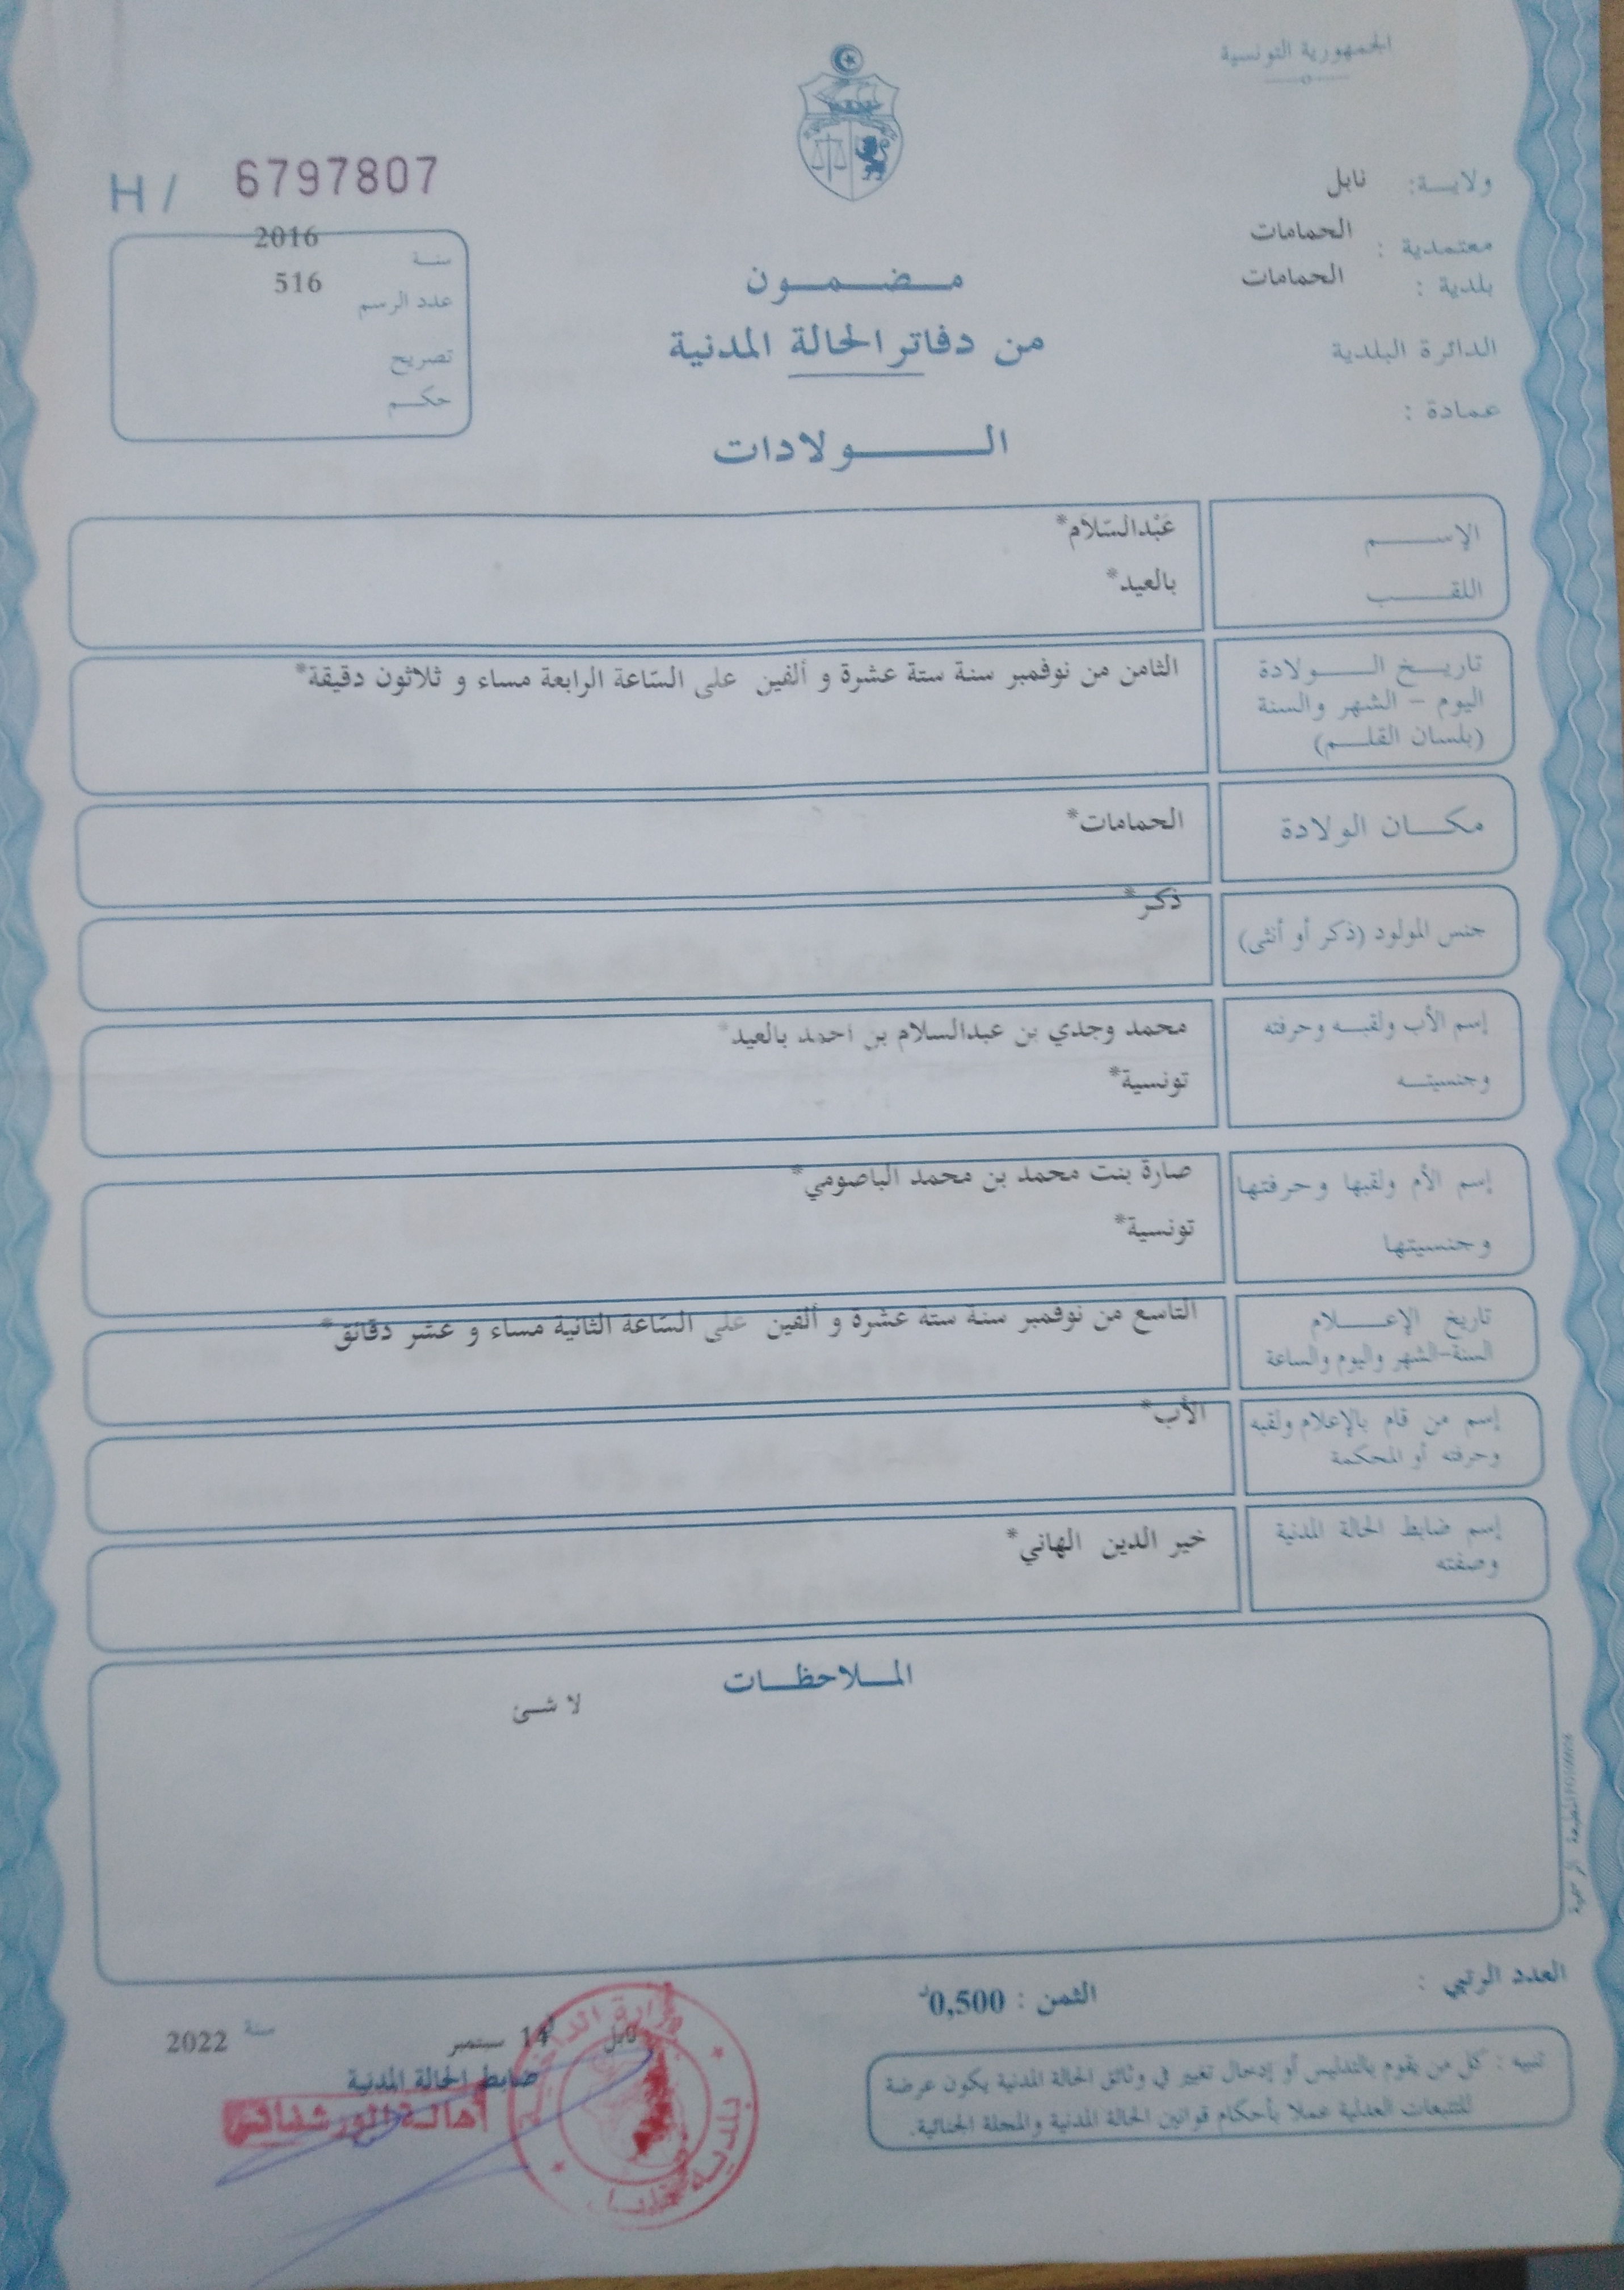 الجمهورية التونسية
ولايـة: نابل
معتمدية : الحمامات
بلدية : الحمامات
الدائرة البلدية
عمادة :
H / 6797807
سنـة 2016
عدد الرسم 516
تصريح
حكـم
مـضـمـون
من دفاتر الحالة المدنية
الـولادات
الإسـم عَبْدالسّلاَم*
اللقـب بالعيد*
تاريـخ الـولادة الثامن من نوفمبر سنة ستة عشرة و ألفين على السّاعة الرابعة مساء و ثلاثون دقيقة*
اليوم - الشهر والسنة
(بلسان القلـم)
مكـان الولادة الحمامات*
جنس المولود (ذكر أو أنثى) ذكر*
إسم الأب ولقبـه وحرفته محمد وجدي بن عبدالسلام بن احمد بالعيد*
وجنسيتـه تونسية*
إسم الأم ولقبها وحرفتها صارة بنت محمد بن محمد الباصومي*
وجنسيتها تونسية*
تاريخ الإعـلام التاسع من نوفمبر سنة ستة عشرة و ألفين على السّاعة الثانية مساء و عشر دقائق*
السنة-الشهر واليوم والساعة
إسم من قام بالإعلام ولقبه الأب*
وحرفته أو المحكمة
إسم ضابط الحالة المدنية خير الدين الهاني*
وصفته
المـلاحظـات
لا شـئ
المطبعة الرسمية
العدد الرتبي :
الثمن : 0,500د
نابل 14 سبتمبر سنة 2022
ضابط الحالة المدنية
تنبيه : كل من يقوم بالتدليس أو إدخال تغيير في وثائق الحالة المدنية يكون عرضة
للتتبعات العدلية عملا بأحكام قوانين الحالة المدنية والمجلة الجنائية.